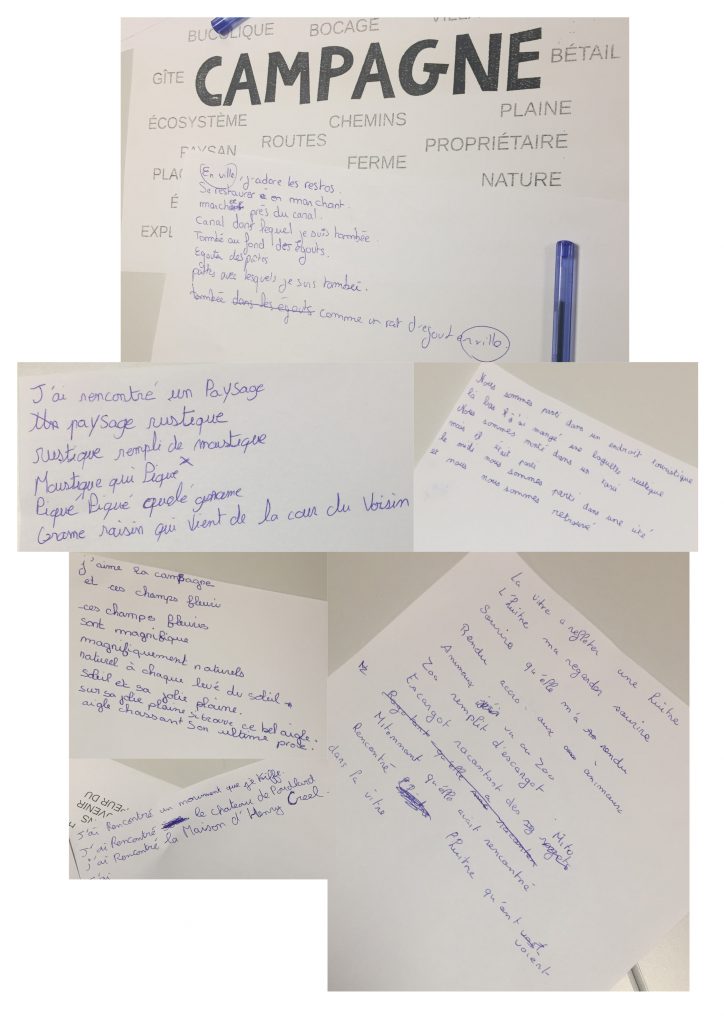 BUCOLIQUE
BOCAGE
VILLA
BÉTAIL
CAMPAGNE
GÎTE
ÉCOSYSTÈME
CHEMINS
PLAINE
PAYSAN
ROUTES
PROPRIÉTAIRE
FERME
PLA
NATURE
É
EXPL
En ville, j'adore les restos.
Se restaurer en marchant.
près du canal.
Canal dans lequel je suis tombée.
Tombé au fond des égouts.
Egouts des pâtes
pâttes avec lesquels je suis tombeé.
tombée dans les égouts comme un rat d'egout en ville.
J'ai rencontré un Paysage
Un paysage rustique
rustique rempli de moustique
Moustique qui Pique
Piqué Piqué quelé
Grame raisin qui vient de la cour du Voisin
Nous sommes parti dans un endroit touristique
la bas j'ai mangé une baguette rustique
Nous sommes monté dans un taxi
mais il était parti
le midi nous sommes parti dans une cité
et nous nous sommes retrouvé
j'aime la campagne
et ces champs fleuri
ces champs fleuries
sont magnifique
magnifiquement naturels
naturel à chaque levé du soleil
Soleil et sa jolie plaine.
sur sa jolie plaine si trouve ce bel aigle.
aigle chassant son ultime proie.
VS
VENIR
EUR DU
J'ai Rencontré un monument que j'ai kiffé.
J'ai Rencontré le chateau de Poudlard
j'ai Rencontré la Maison d'Henry Creel.
La vitre a refleter une huître
L'huître ma regarder sourire
Sourire qu'elle m'a rendu
Rendu accro aux animaux
Animaux vu au Zoo
Zoo remplit d'escargot
Escargot racontant des Mito
Mitonnant qu'elle avait rencontré
Rencontré l'huître qu'ont voient
dans la vitre